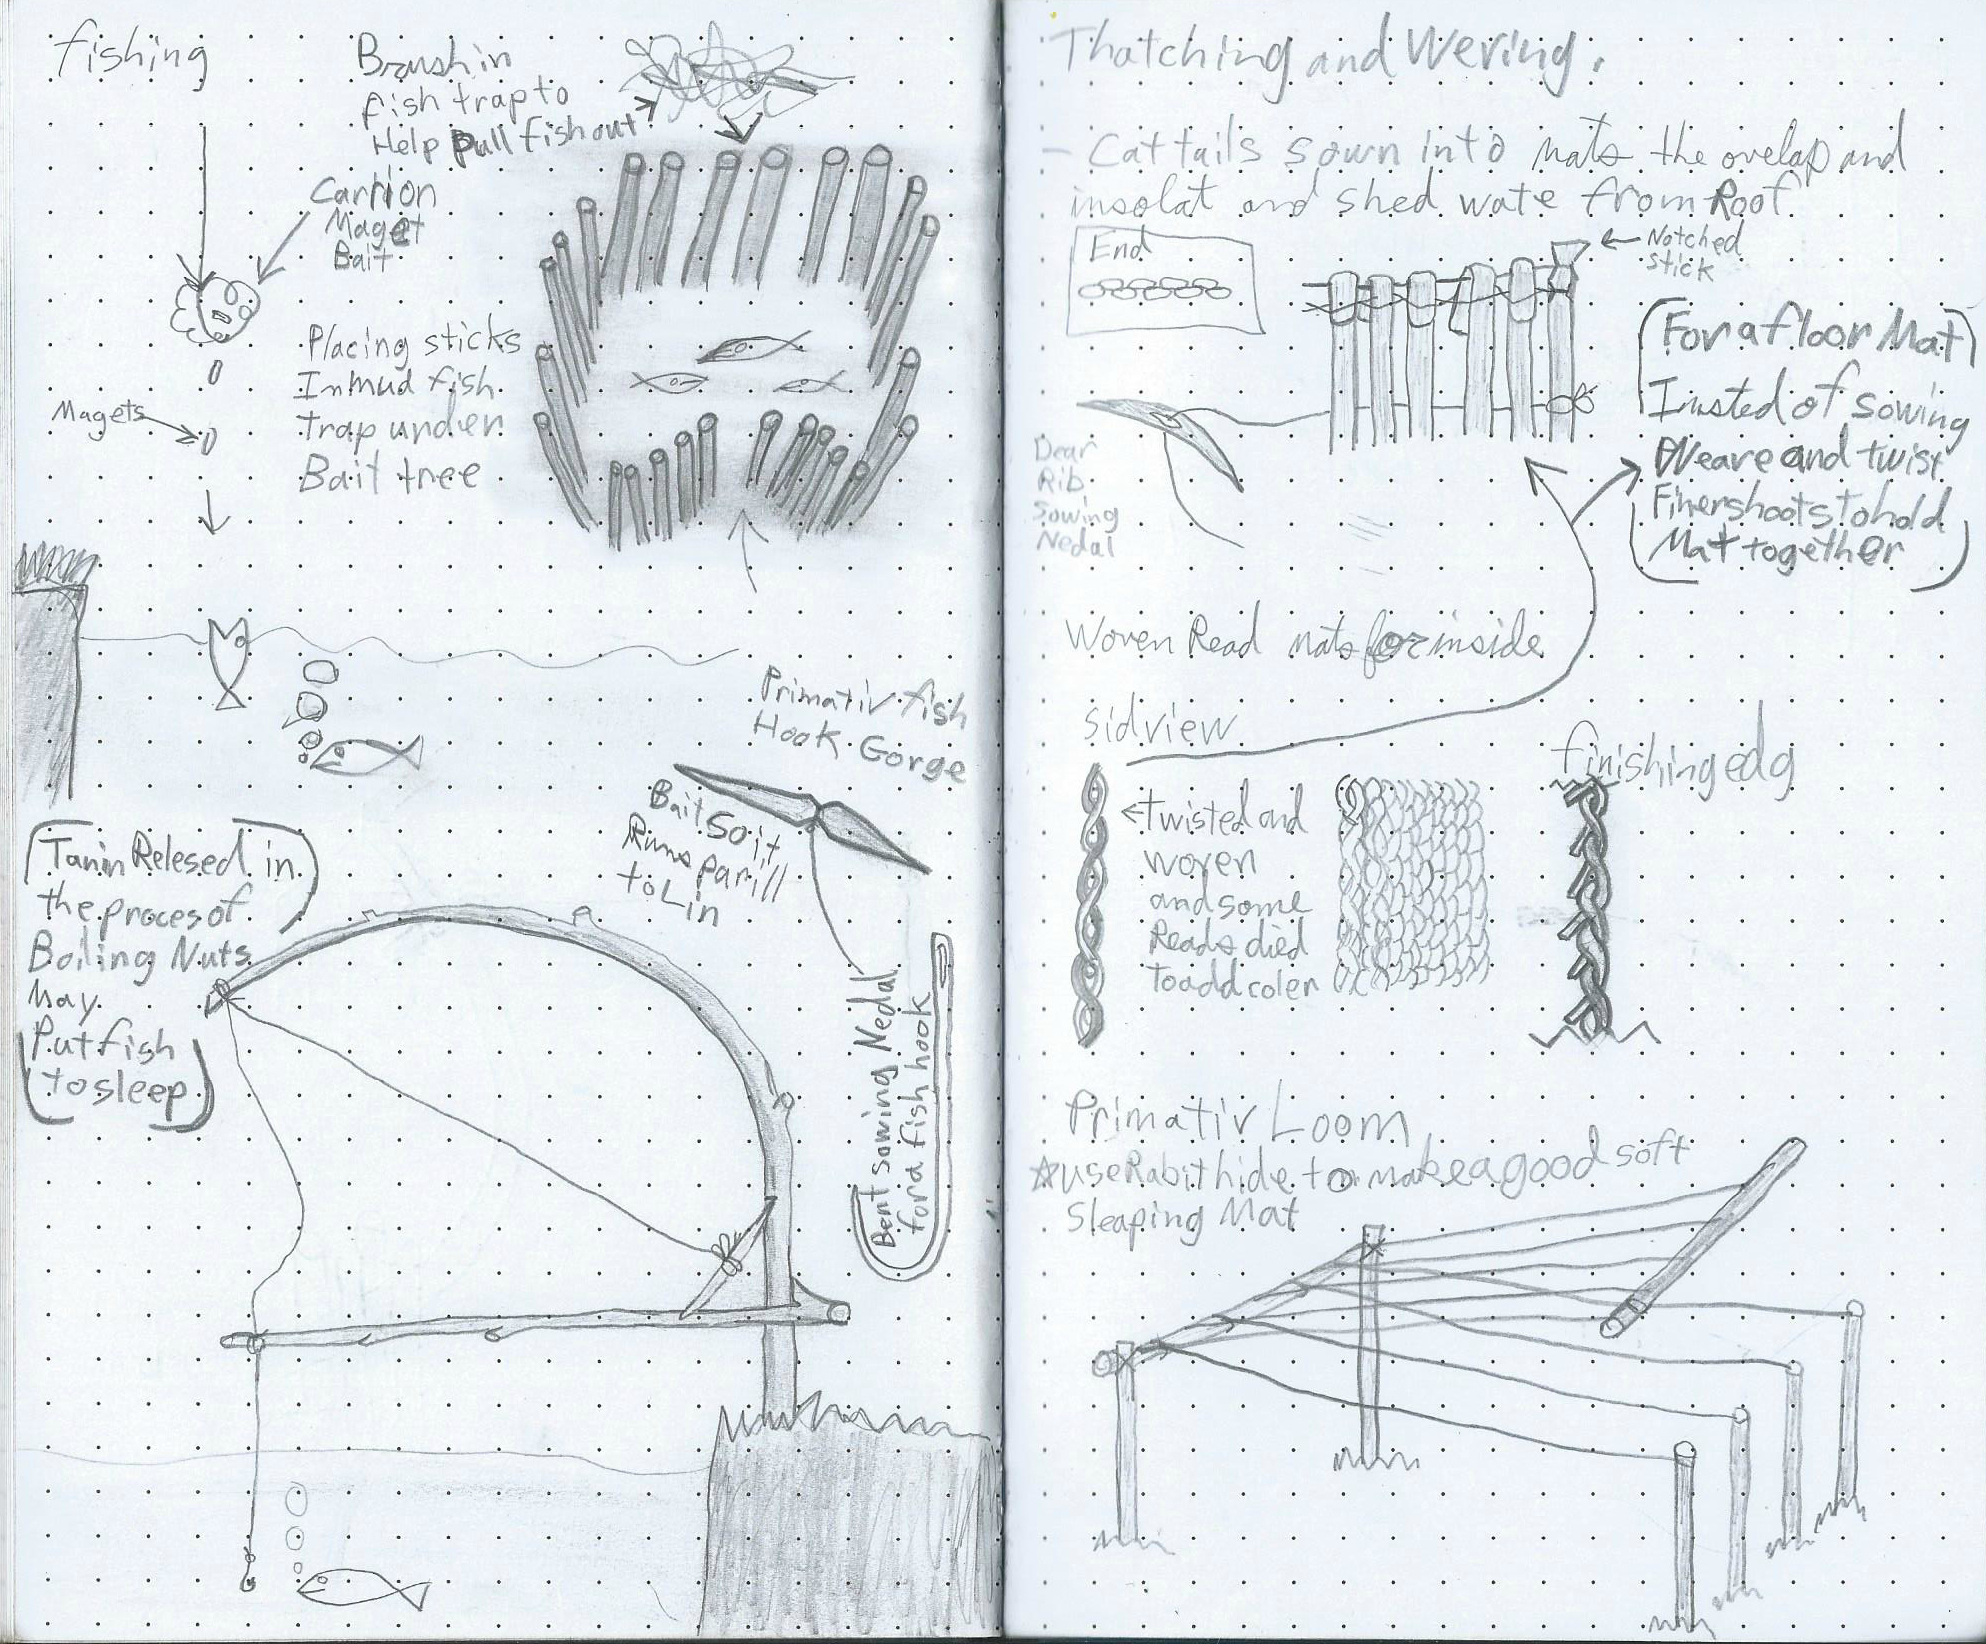 fishing
Brush in
fish trap to
Help pull fish out
Carrion
Maget
Bait
Placing sticks
In Mud fish
trap under
Bait tree
Magets
Primativ fish
Hook Gorge
Bait So it
Runs parill
to Lin
(Tanin Relesed in
the proces of
Boiling Nuts
May
Put fish
to sleep)
Bent Sowing Nedal
for a fish hook
Thatching and Wering.
- Cattails sown into mats the ovelap and
insolat and shed wate from Roof
End
Notched
stick
(For a floor Mat)
Insted of sowing
Weave and twist
Finer shoots to hold
Mat together
Dear
Rib
Sowing
Nedal
Woven Read mats for inside
Sid view
finishing edg
twisted and
woven
and some
Reads died
to add coler
Primativ Loom
☆ use Rabit hide to make a good soft
Sleaping Mat